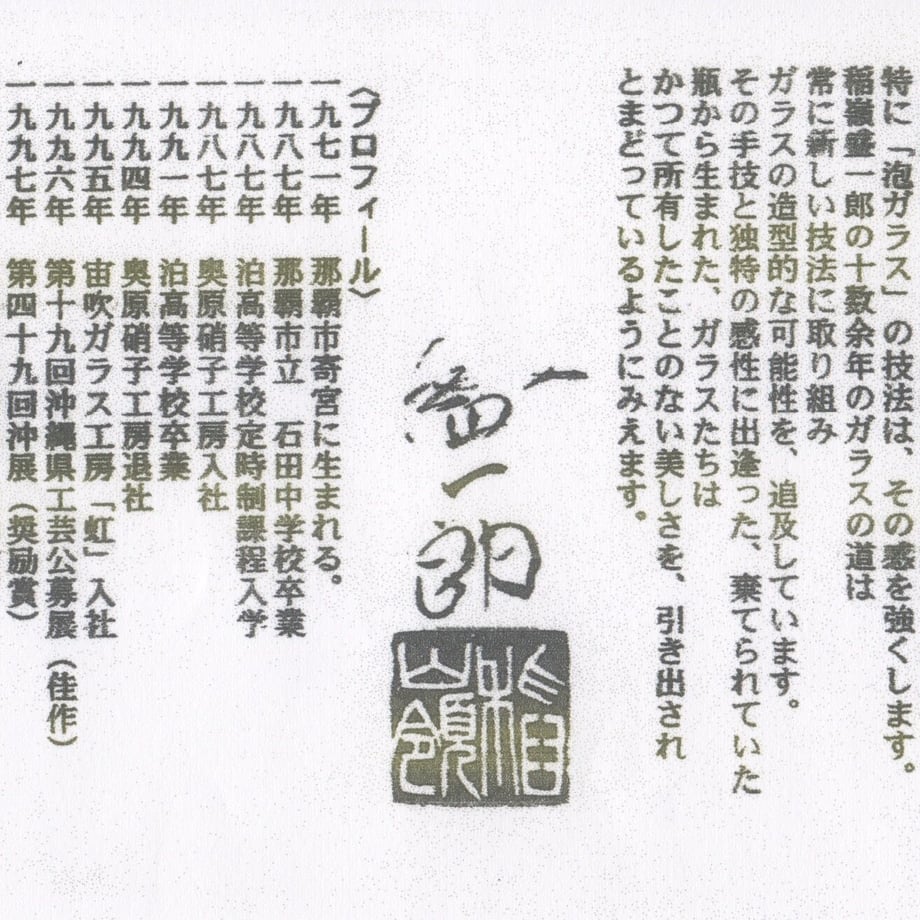 特に「泡ガラス」の技法は、その感を強くします。
稲嶺盛一郎の十数余年のガラスの道は
常に新しい技法に取り組み
ガラスの造型的な可能性を、追及しています。
その手技と独特の感性に出逢った、棄てられていた
瓶から生まれた、ガラスたちは
かつて所有したことのない美しさを、引き出され
とまどっているようにみえます。
盛一郎
稲嶺
〈プロフィール〉
一九七一年 那覇市寄宮に生まれる。
一九八七年 那覇市立 石田中学校卒業
一九八七年 泊高等学校定時制課程入学
一九八七年 奥原硝子工房入社
一九九一年 泊高等学校卒業
一九九四年 奥原硝子工房退社
一九九五年 宙吹ガラス工房「虹」入社
一九九六年 第十九回沖縄県工芸公募展(佳作)
一九九七年 第四十九回沖展(奨励賞)